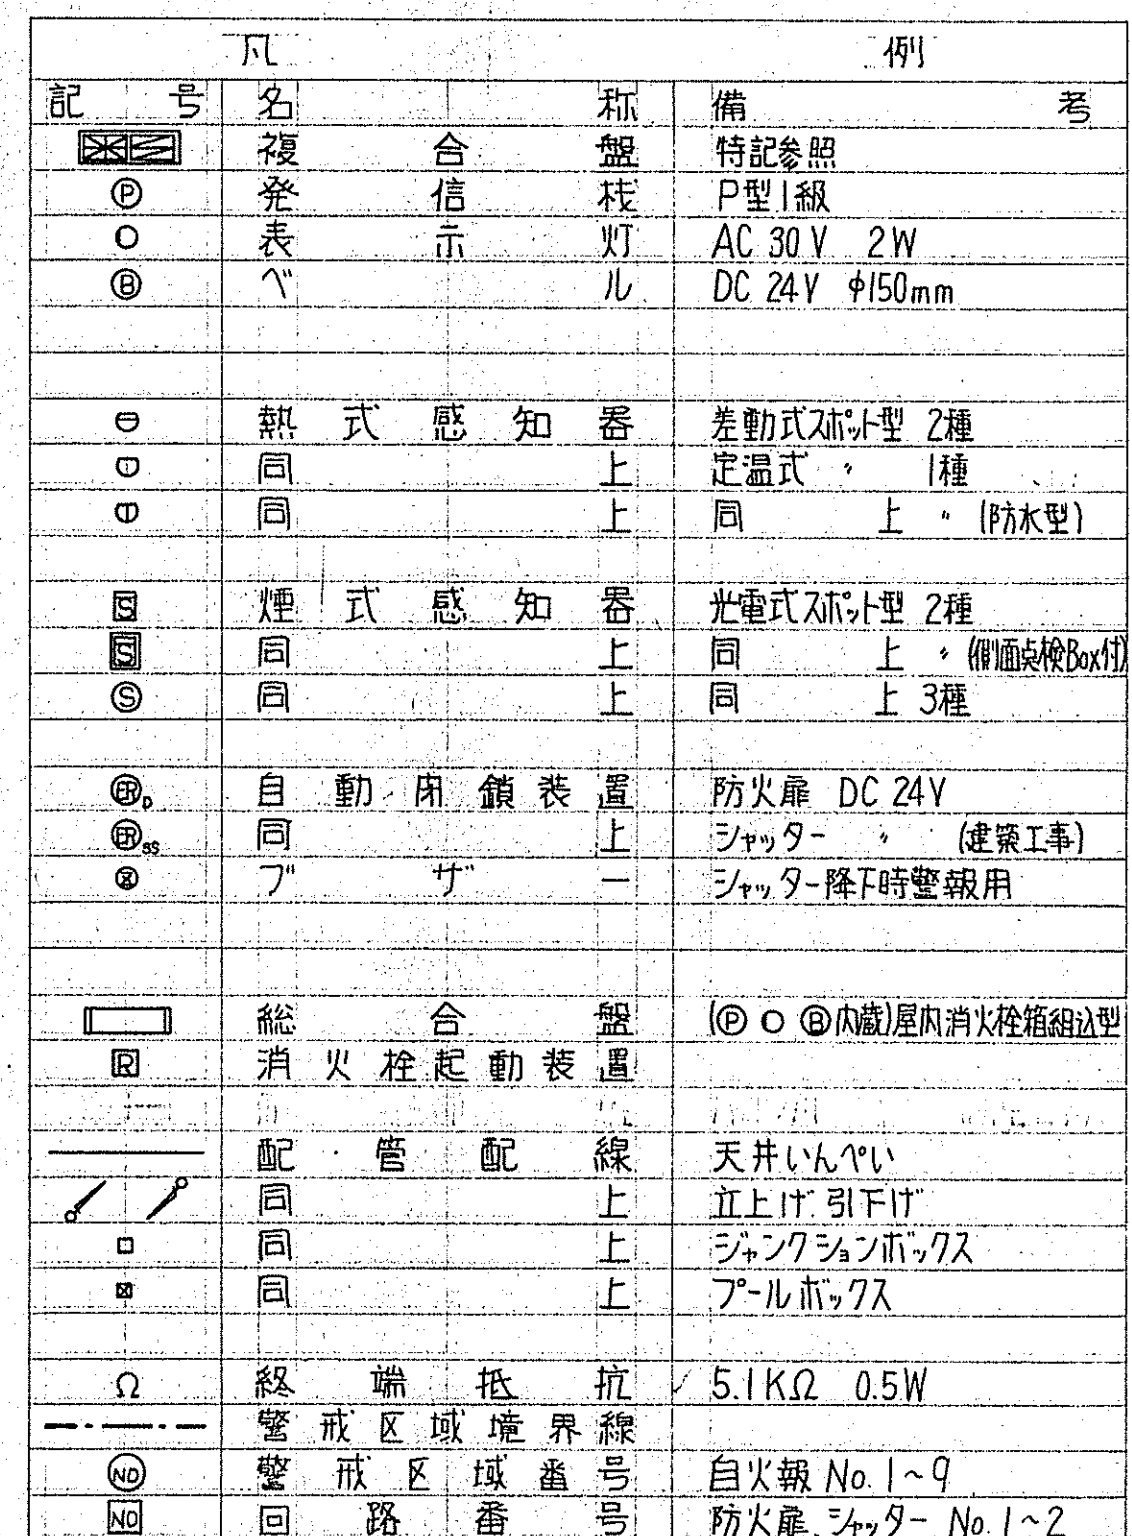 凡例
記号 名称 備考
複合盤 特記参照
Ⓟ 発信栈 P型1級
表示灯 AC 30V 2W
Ⓑ ベル DC 24V φ150mm
熱式感知器 差動式スポット型 2種
同上 定温式 〃 1種
同上 同上 〃 (防水型)
S 煙式感知器 光電式スポット型 2種
S 同上 同上 〃 (側面点検Box付)
Ⓢ 同上 同上 3種
ER D 自動閉鎖装置 防火扉 DC 24V
ER SS 同上 シャッター 〃 (建築工事)
ブザー シャッター降下時警報用
総合盤 (Ⓟ ○ Ⓑ内蔵)屋内消火栓箱組込型
R 消火栓起動装置
配管配線 天井いんぺい
同上 立上げ.引下げ
同上 ジャンクションボックス
同上 プールボックス
Ω 終端抵抗 5.1KΩ 0.5W
警戒区域境界線
NO 警戒区域番号 自火報 No.1~9
NO 回路番号 防火扉.シャッター No.1~2